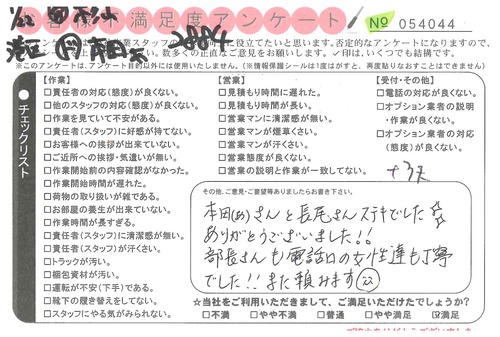 お客様満足度アンケート! No 054044
1/22
本田 2884
善に役立てたいと思います。否定的なアンケートになりますので、
数多くの正直なご意見をお願いします。✓印は、いくつでも結構です。
※このアンケートは、アンケート目的以外には使用いたしません。(※情報保護シールは1度はがすと、再度貼りなおすことはできません)
チェックリスト
【作業】
□責任者の対応(態度)が良くない。
□他のスタッフの対応(態度)が良くない。
□作業を見ていて不安がある。
□責任者(スタッフ)に好感が持てない。
□お客様への挨拶が出来ていない。
□ご近所への挨拶・気遣いが無い。
□作業開始前の内容確認がなかった。
□作業開始時間が遅れた。
□荷物の取り扱いが雑である。
□お部屋の養生が出来ていない。
□作業時間が長すぎる。
□責任者(スタッフ)に清潔感が無い。
□責任者(スタッフ)が汗くさい。
□トラックが汚い。
□梱包資材が汚い。
□運転が不安(下手)である。
□靴下の履き替えをしてない。
□スタッフにやる気がみられない。
【営業】
□見積もり時間に遅れた。
□見積もり時間が長い。
□営業マンに清潔感が無い。
□営業マンが煙草くさい。
□営業マンが汗くさい。
□営業態度が良くない。
□営業の説明と作業が一致してない。
【受付・その他】
□電話の対応が良くない。
□オプション業者の説明
・作業が良くない。
□オプション業者の対応
(態度)が良くない。
その他、ご意見・ご要望等ありましたらお書き下さい。
本田(あ)さんと長尾さんステキでした☆
ありがとうございました!!
部長さんも電話口の女性達も丁寧
でした!!また頼みます
☆当社をご利用いただきまして、ご満足いただけたでしょうか?
□不満 □やや不満 □普通 □やや満足 ☑満足